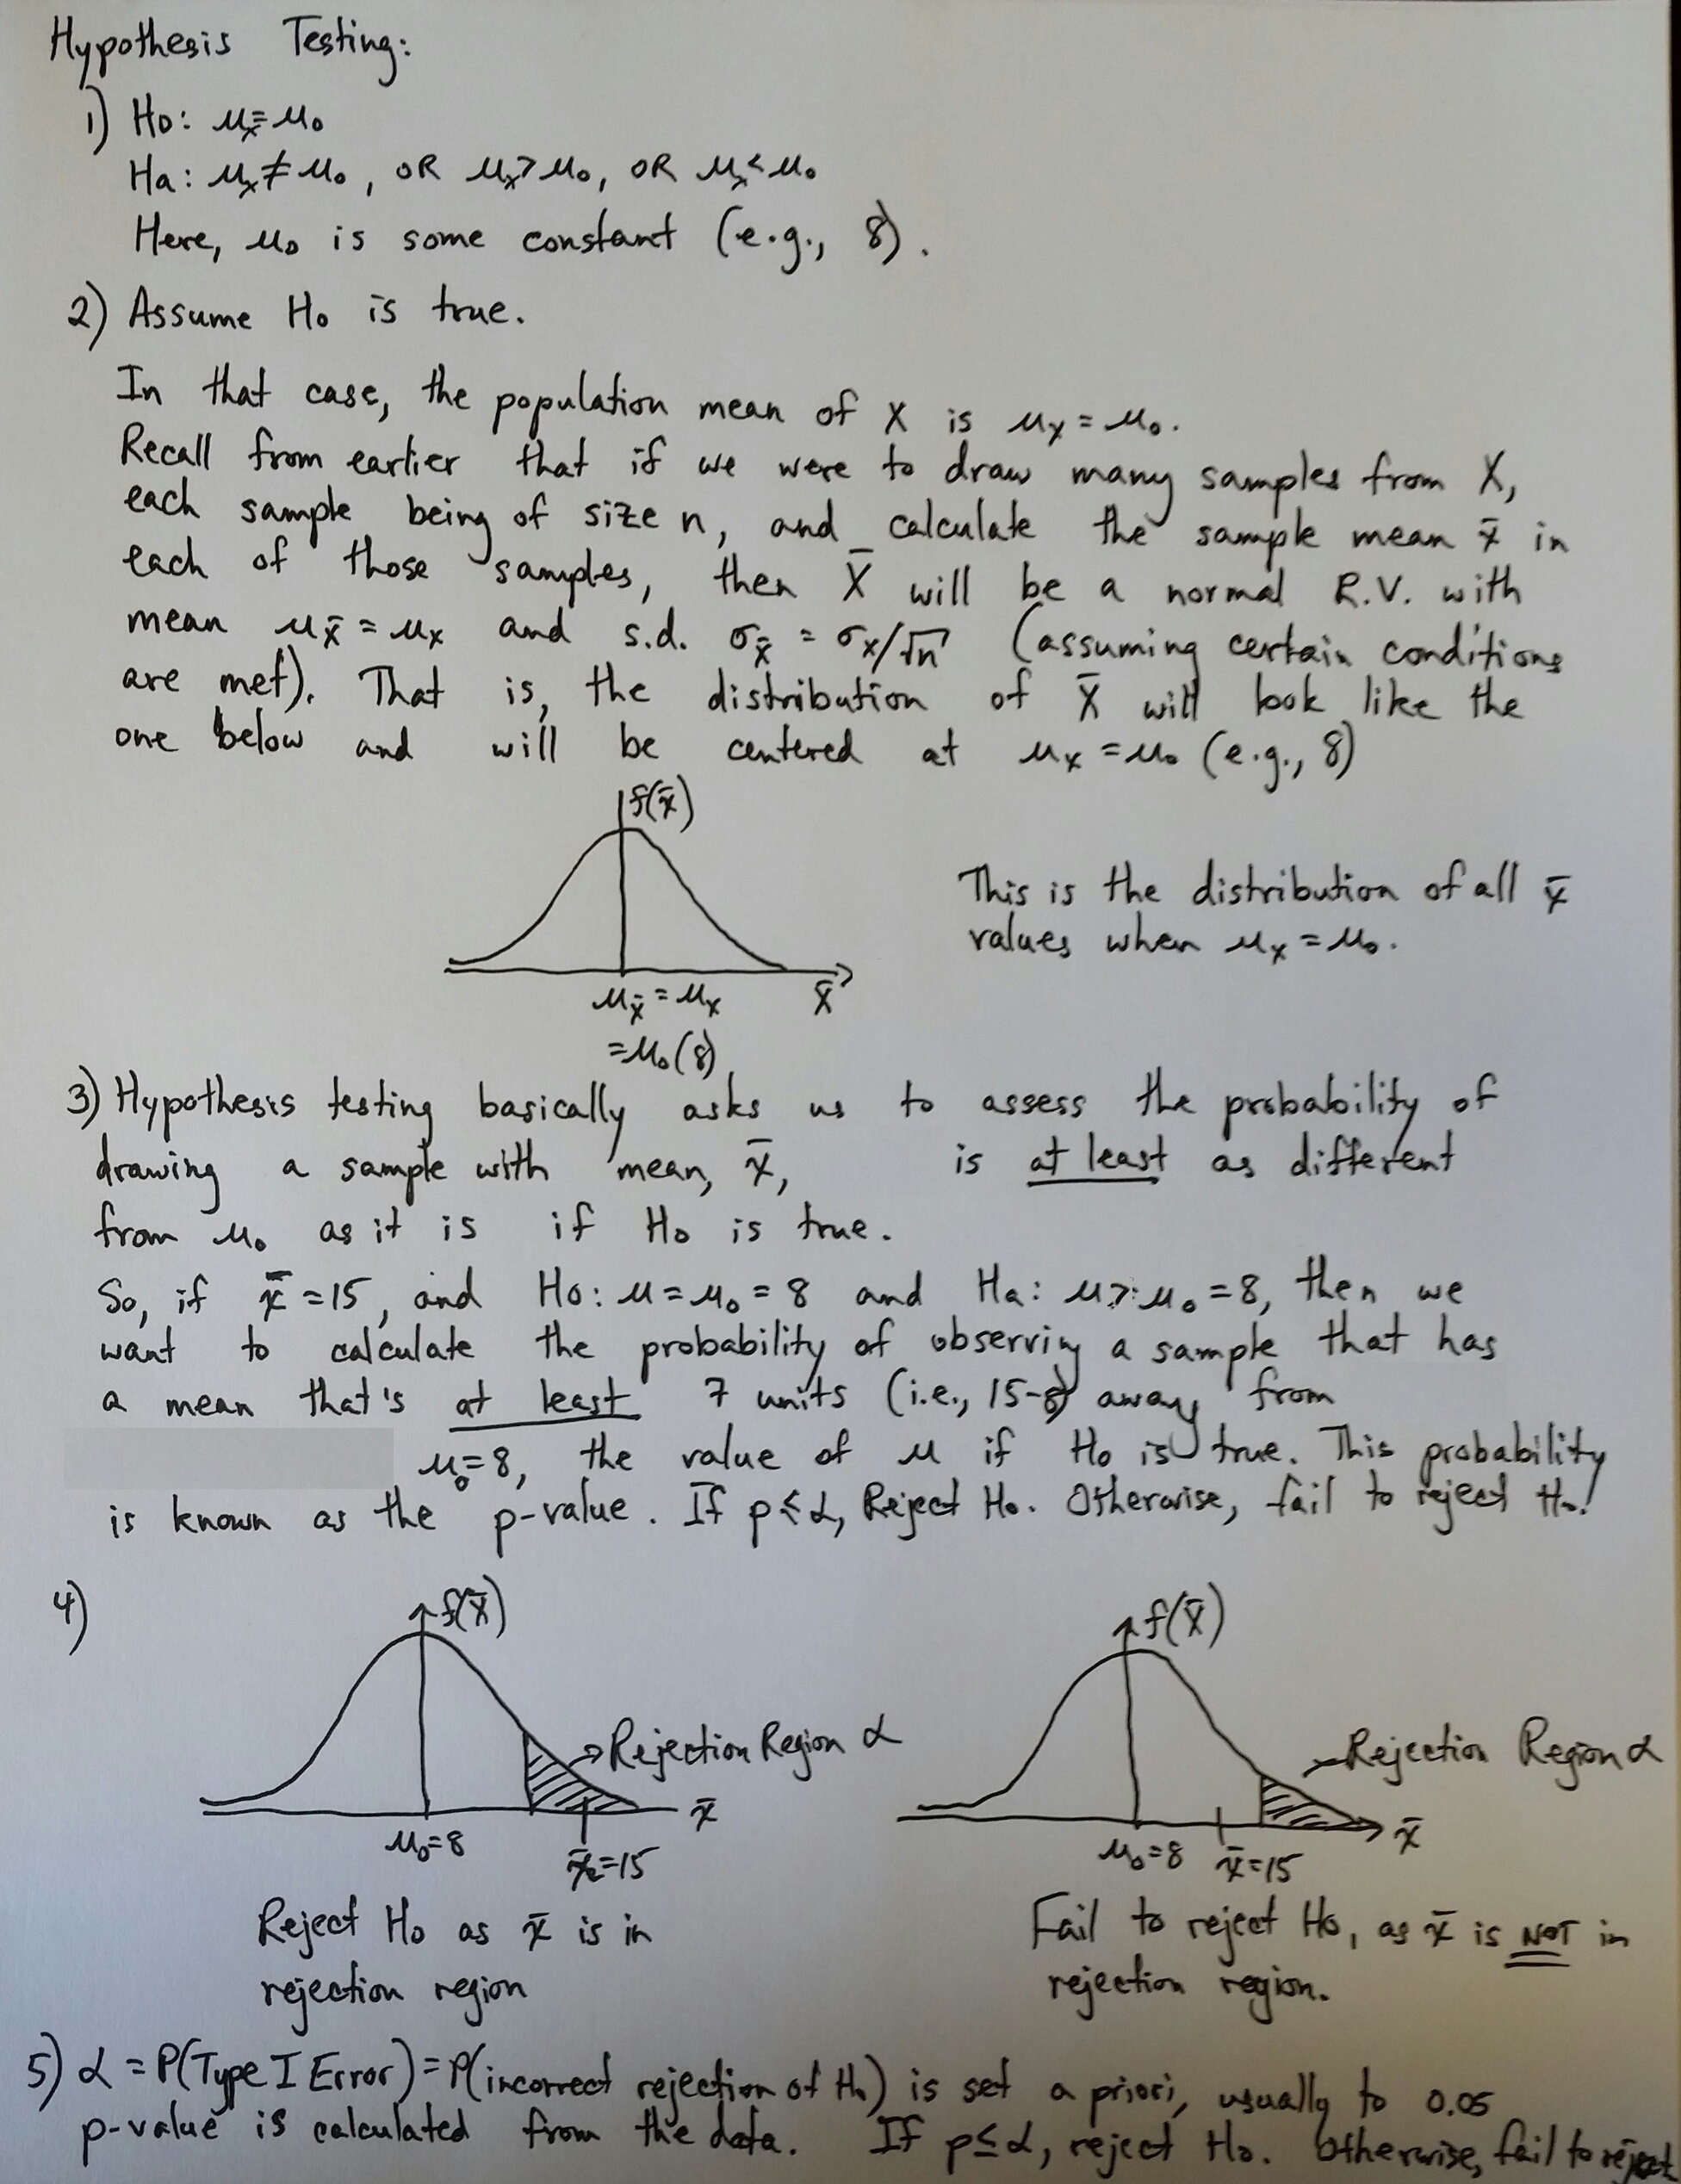 Hypothesis Testing:
1) H₀: μₓ=μ₀
Ha: μₓ≠μ₀, OR μₓ>μ₀, OR μₓ<μ₀
Here, μ₀ is some constant (e.g., 8).
2) Assume H₀ is true.
In that case, the population mean of X is μₓ=μ₀.
Recall from earlier that if we were to draw many samples from X,
each sample being of size n, and calculate the sample mean x̄ in
each of those samples, then X̄ will be a normal R.V. with
mean μ_X̄ = μₓ and s.d. σ_X̄ = σₓ/√n (assuming certain conditions
are met). That is, the distribution of X̄ will look like the
one below and will be centered at μₓ=μ₀ (e.g., 8)
f(x̄)
This is the distribution of all x̄
values when μₓ=μ₀.
μ_X̄ = μₓ X̄
=μ₀(8)
3) Hypothesis testing basically asks us to assess the probability of
drawing a sample with mean, x̄, is at least as different
from μ₀ as it is if H₀ is true.
So, if x̄=15, and H₀: μ=μ₀=8 and Ha: μ>μ₀=8, then we
want to calculate the probability of observing a sample that has
a mean that's at least 7 units (i.e., 15-8) away from
μ₀=8, the value of μ if H₀ is true. This probability
is known as the p-value. If p≤α, Reject H₀. Otherwise, fail to reject H₀!
4) f(X̄) f(X̄)
Rejection Region α Rejection Region α
μ₀=8 x̄=15 x̄ μ₀=8 x̄=15 x̄
Reject H₀ as x̄ is in
rejection region
Fail to reject H₀, as x̄ is NOT in
rejection region.
5) α = P(Type I Error)=P(incorrect rejection of H₀) is set a priori, usually to 0.05
p-value is calculated from the data. If p≤α, reject H₀. Otherwise, fail to reject